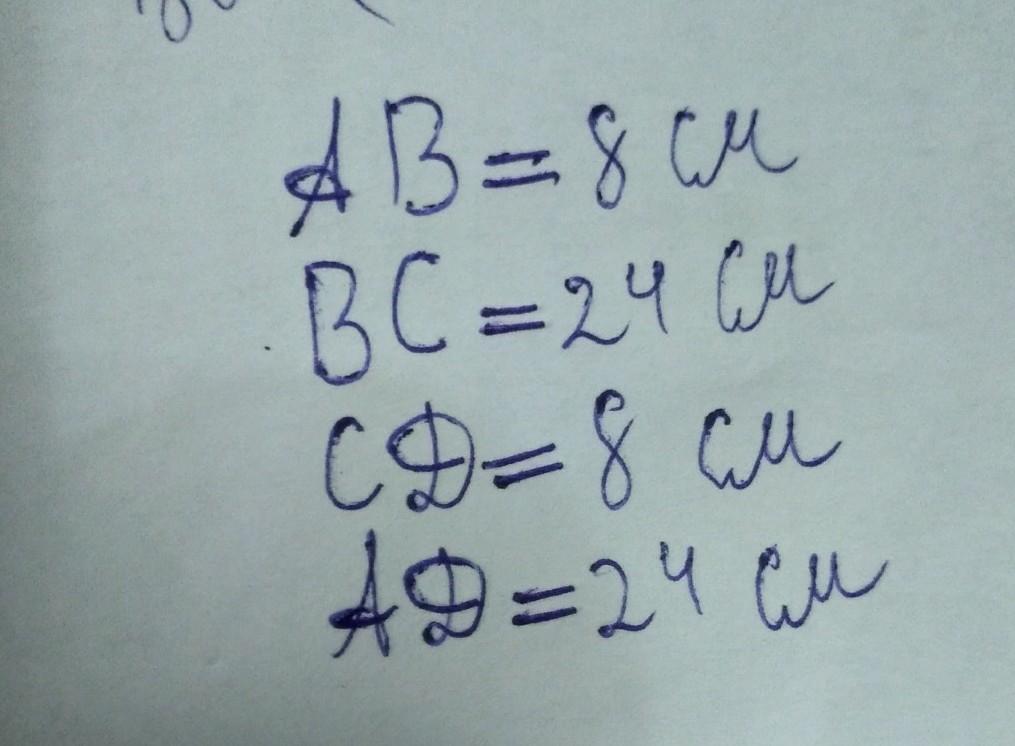 AB = 8 см
BC = 24 см
CD = 8 см
AD = 24 см